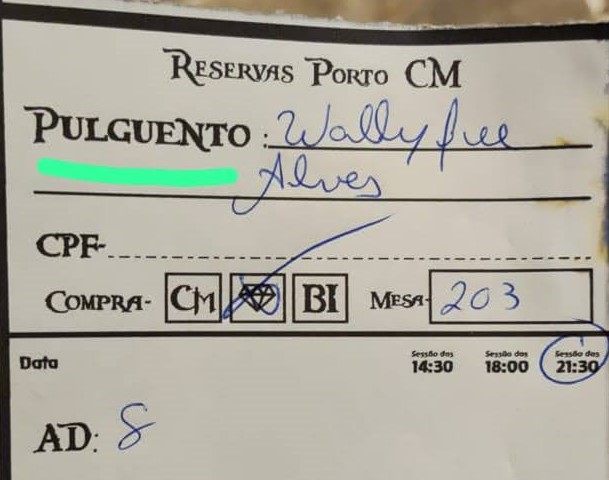 Reservas Porto CM
Pulguento: Wallyfree
Alves
CPF-
Compra- CM BI Mesa- 203
Data Sessão das 14:30 Sessão das 18:00 Sessão das 21:30
AD: 8